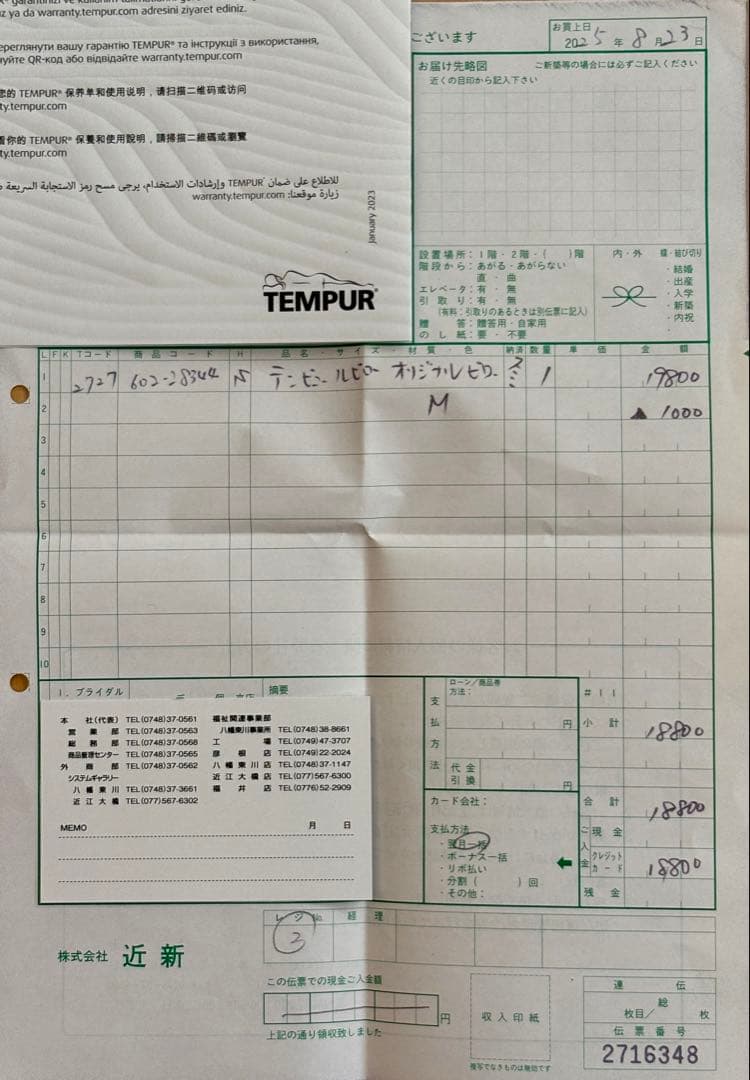 iz ya da warranty.tempur.com adresini ziyaret ediniz.
переглянути вашу гарантію TEMPUR® та інструкції з використання,
нуйте QR-код або відвідайте warranty.tempur.com
您的 TEMPUR® 保养单和使用说明，请扫描二维码或访问
ty.tempur.com
看你的 TEMPUR® 保養和使用說明，請掃描二維碼或瀏覽
ty.tempur.com
للاطلاع على ضمان TEMPUR® وإرشادات الاستخدام، يرجى مسح رمز الاستجابة السريعة
زيارة موقعنا: warranty.tempur.com
January 2023
TEMPUR®
ございます
お買上日
2025年8月23日
お届け先略図 ご新築等の場合には必ずご記入ください
近くの目印から記入下さい
設置場所：1階・2階・( )階
階段から：あがる・あがらない
直・曲
エレベータ：有・無
引取り：有・無
(有料：引取りのあるときは別伝票に記入)
贈答：贈答用・自家用
のし紙：要・不要
内・外 蝶・結び切り
・結婚
・出産
・入学
・新築
・内祝
L F K Tコード 商品コード H 品名・サイズ・材質・色 納済 数量 単価 金額
1 2727 602-28344 N テンピュールピロー オリジナルピロー スミ 1 19800
2 M ▲1000
3
4
5
6
7
8
9
10
1.ブライダル
摘要
本社(代表) TEL(0748)37-0561 福祉関連事業部
営業部 TEL(0748)37-0563 八幡東川事業所 TEL(0748)38-8661
総務部 TEL(0748)37-0568 工場 TEL(0749)47-3707
商品管理センター TEL(0748)37-0565 彦根店 TEL(0749)22-2024
外商部 TEL(0748)37-0562 八幡東川店 TEL(0748)37-1147
システムギャラリー 近江大橋店 TEL(077)567-6300
八幡東川 TEL(0748)37-3661 福井店 TEL(0776)52-2909
近江大橋 TEL(077)567-6302
MEMO 月 日
支払方法
ローン／商品券
方法：
円
代金引換
円
カード会社：
支払方法
・翌月一括
・ボーナス一括
・リボ払い
・分割( )回
・その他：
#11
小計 18800
合計 18800
ご入金
現金
クレジットカード 18800
残金
レジNo. 経理
3
株式会社 近新
この伝票での現金ご入金額
円
上記の通り領収致しました
収入印紙
複写でなきものは無効です
連伝
総
枚目／ 枚
伝票番号
2716348